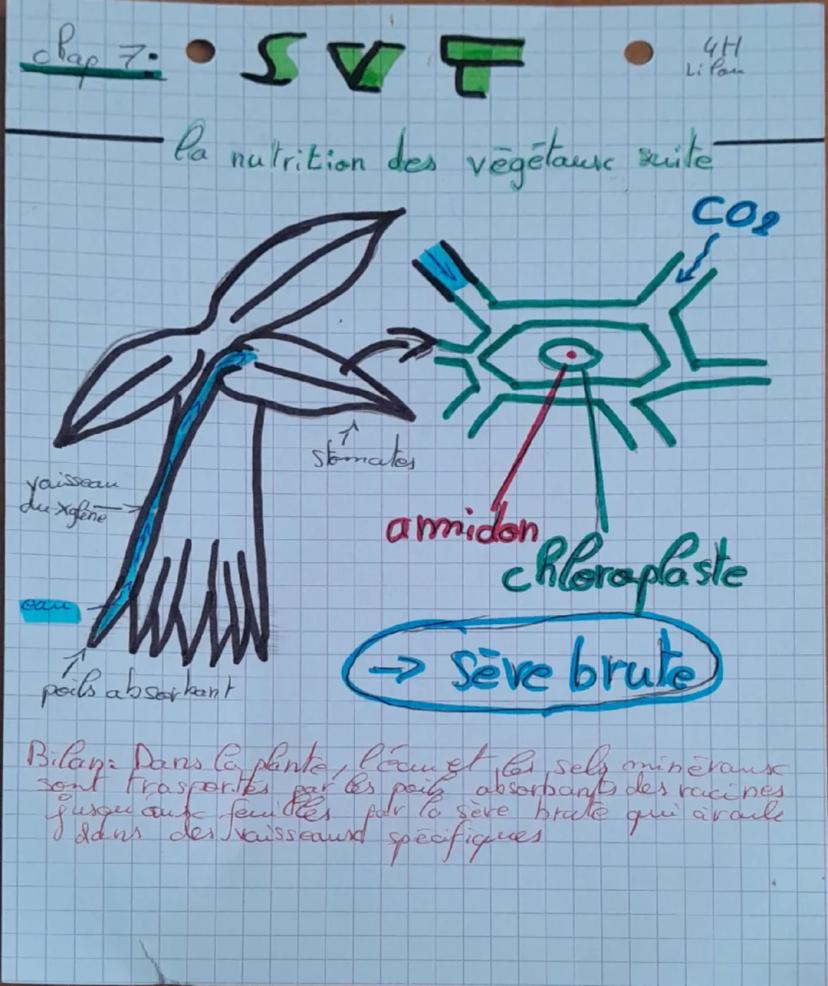 chap 7.
SVT
4H
Lilou
la nutrition des végétaux suite
CO2
stomates
vaisseau
du xylène
amidon
chloroplaste
eau
→ sève brute
poils absorbant
Bilan: Dans la plante, l'eau et les sels minéraux
sont trasportés par les poils absorbants des racines
jusqu'aux feuilles par la sève brute qui circule
dans des vaisseaux spécifiques